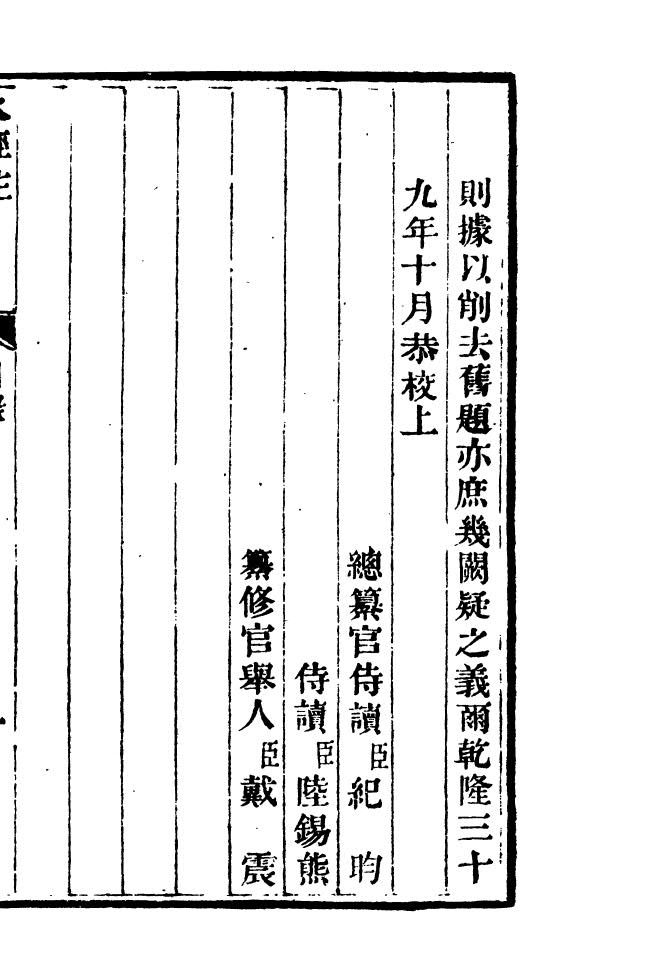 則據以削去舊題亦庶幾闕疑之義爾乾隆三十
九年十月恭校上
總纂官侍讀臣紀昀
侍讀臣陸錫熊
纂修官舉人臣戴震